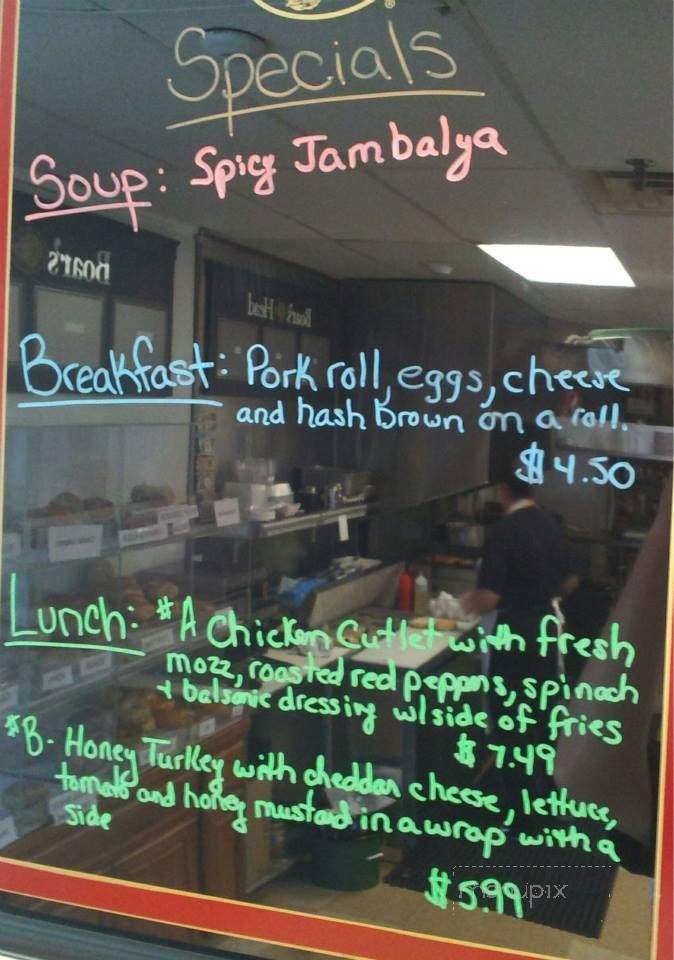 Specials
Soup: Spicy Jambalya
Boar's
Boar's Head
Breakfast: Pork roll, eggs, cheese
and hash brown on a roll.
$4.50
Lunch: #A Chicken Cutlet with fresh
mozz, roasted red peppers, spinach
+ balsamic dressing w/side of fries
$7.49
#B- Honey Turkey with cheddar cheese, lettuce,
tomato and honey mustard in a wrap with a
side
$5.99
menupix